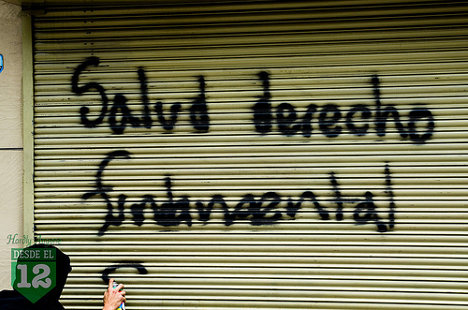 Salud derecho
fundamental
C
DESDE EL
12